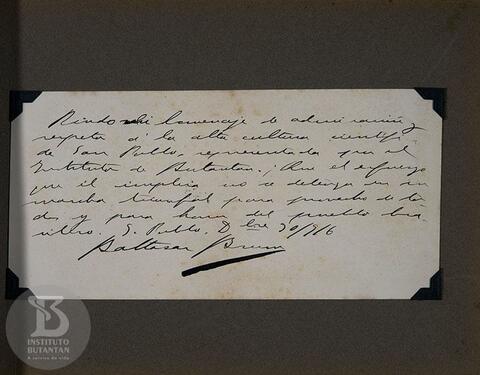 Rindo mi homenaje de admiración y
respeto á la alta cultura científi-
ca de San Pablo, representada por el
Instituto de Butantan. ¡Que el esfuerzo
que él implica no se detenga en su
marcha triunfal para provecho de to-
dos y para honra del pueblo bra-
silero. S. Pablo, Dbre 30/916
Baltasar Brum
INSTITUTO
BUTANTAN
A serviço da vida